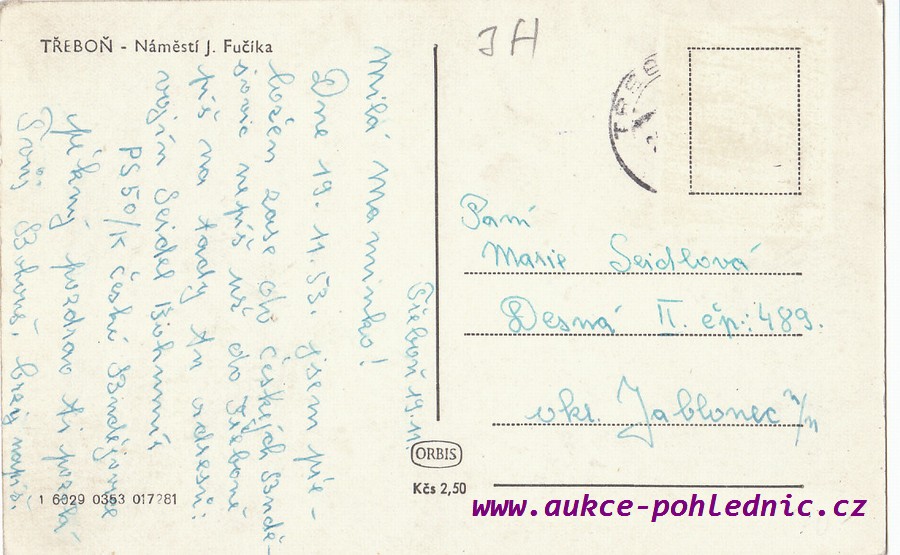 TŘEBOŇ - Náměstí J. Fučíka
JH
TŘEB
Třeboň 19. 11.
Milá Maminko!
Dne 19. 11. 53. jsem pře-
ložen zase do Českých Budě-
jovic nepiš už do Třeboně
piš na tady tu adresu:
vojín Seidel Bohumil
PS 50/K České Budějovice
pěkný pozdrav Ti posílá
Tvůj Bohouš. brzy napiš.
Paní
Marie Seidlová
Desná II. čp: 489.
okr. Jablonec n/n
ORBIS
Kčs 2,50
1 6029 0353 017281
www.aukce-pohlednic.cz